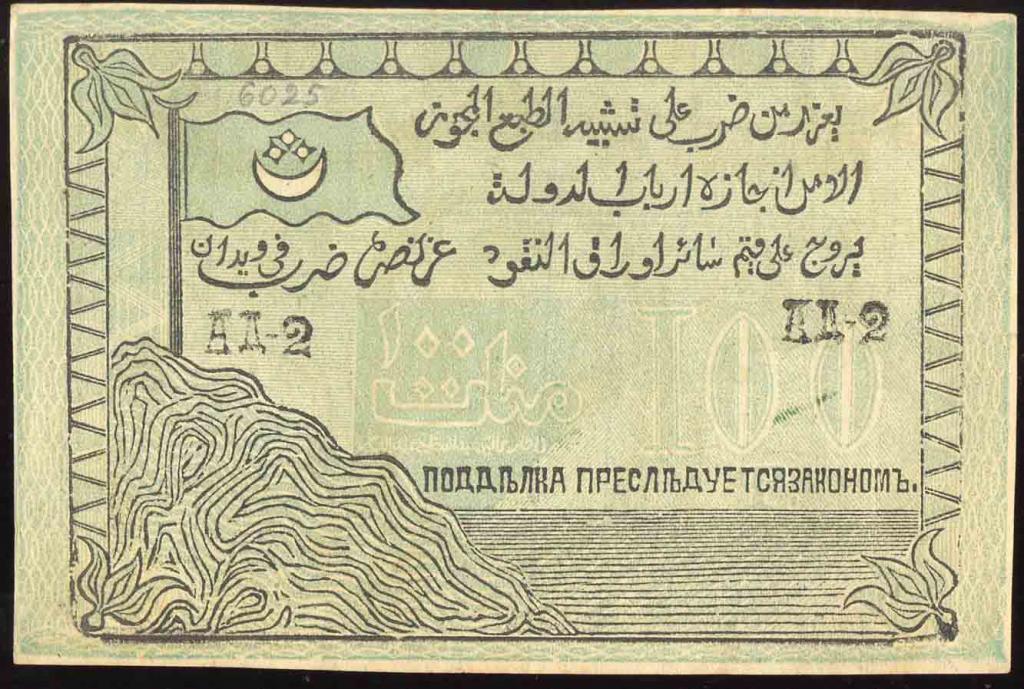 6025
يعزر من ضرب على تشبيه الطبع المجوز
الا من اجازه ارباب الدولة
يروج على قيم سائر اوراق النقود عز نصره ضرب في ويدان
АД-2 АД-2
١٠٠ منات 100
ПОДДѢЛКА ПРЕСЛѢДУЕТСЯЗАКОНОМЪ.